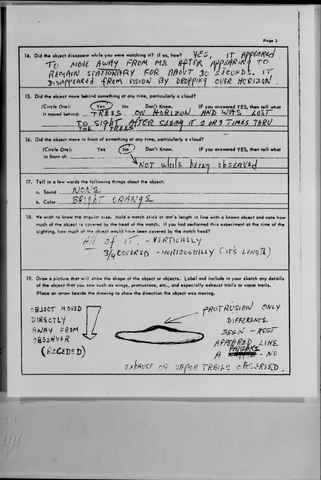 Page 3
14. Did the object disappear while you were watching it? If so, how? YES, IT APPEARED
TO MOVE AWAY FROM ME AFTER APPEARING TO
REMAIN STATIONARY FOR ABOUT 30 SECONDS. IT
DISAPPEARED FROM VISION BY DROPPING OVER HORIZON.
15. Did the object move behind something at any time, particularly a cloud?
(Circle One): Yes No Don't Know. IF you answered YES, then tell what
it moved behind: TREES ON HORIZON AND WAS LOST
TO SIGHT AFTER SEEING IT 2 OR 3 TIMES THRU
THE TREES
16. Did the object move in front of something at any time, particularly a cloud?
(Circle One): Yes No Don't Know. IF you answered YES, then tell what
in front of:
NOT while being observed
17. Tell in a few words the following things about the object:
a. Sound NONE
b. Color BRIGHT ORANGE
18. We wish to know the angular size. Hold a match stick at arm's length in line with a known object and note how
much of the object is covered by the head of the match. If you had performed this experiment at the time of the
sighting, how much of the object would have been covered by the match head?
All OF IT. - VERTICALLY
3/4 COVERED - HORIZONTALLY (IT'S LENGTH)
19. Draw a picture that will show the shape of the object or objects. Label and include in your sketch any details
of the object that you saw such as wings, protrusions, etc., and especially exhaust trails or vapor trails.
Place an arrow beside the drawing to show the direction the object was moving.
OBJECT MOVED
DIRECTLY
AWAY FROM
OBSERVER
(RECEDED)
PROTRUSION ONLY
DIFFERENCE
SEEN - REST
APPEARED LINE
A PANCAKE - NO
EXHAUST OR VAPOR TRAILS OBSERVED.